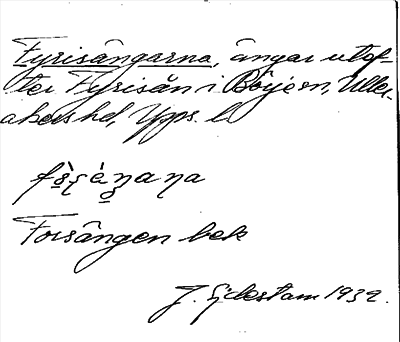 Fyrisängarna, ängar utef-
ter Fyrisån i Börje sn, Uller-
åkers hd, Upps. l.
Forsängen bek
J. Sjdestam 1932.